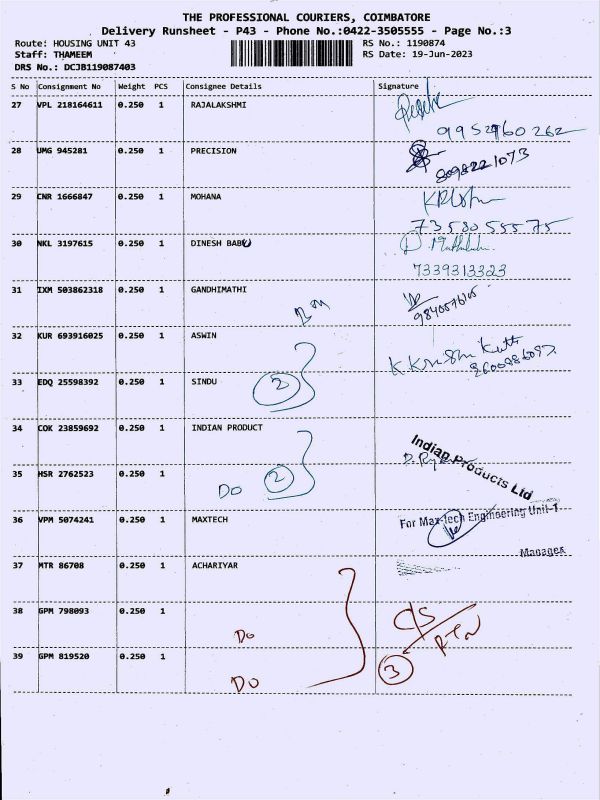 THE PROFESSIONAL COURIERS, COIMBATORE
Delivery Runsheet - P43 - Phone No.:0422-3505555 - Page No.:3
Route: HOUSING UNIT 43 RS No.: 1190874
Staff: THAMEEM RS Date: 19-Jun-2023
DRS No.: DCJB119087403
S No Consignment No Weight PCS Consignee Details Signature
27 VPL 218164611 0.250 1 RAJALAKSHMI
9952960262
28 UMG 945281 0.250 1 PRECISION
8098221073
29 CNR 1666847 0.250 1 MOHANA
7358055575
30 NKL 3197615 0.250 1 DINESH BABU
7339313323
31 IXM 503862318 0.250 1 GANDHIMATHI
32 KUR 693916025 0.250 1 ASWIN
33 EDQ 25598392 0.250 1 SINDU 2
34 COK 23859692 0.250 1 INDIAN PRODUCT
Indian Products Ltd
35 HSR 2762523 0.250 1 DO 2
36 VPM 5074241 0.250 1 MAXTECH For Max-tech Engineering Unit-1
Manager
37 MTR 86708 0.250 1 ACHARIYAR
38 GPM 798093 0.250 1 Do
39 GPM 819520 0.250 1 Do 3